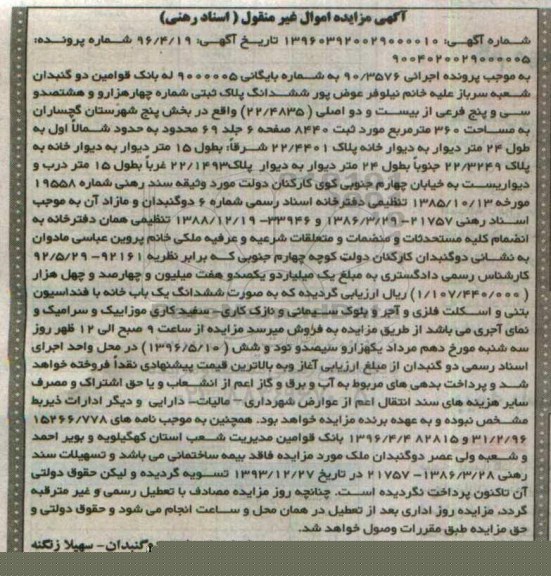 آگهی مزایده اموال غیر منقول ( اسناد رهنی)
شـماره آگهـی: ۱۳۹۶۰۳۹۲۰۰۲۹۰۰۰۰۱۰ تاریخ آگهـی: ۹۶/۴/۱۹ شماره پرونـده:
۹۰۰۴۰۲۰۰۲۹۰۰۰۰۰۵
به موجب پرونده اجرائی ۹۰/۳۵۷۶ به شماره بایگانی ۹۰۰۰۰۰۵ له بانک قوامین دو گنبدان
شـعبه سرباز علیه خانم نیلوفر عوض پور ششـدانگ پلاک ثبتی شماره چهارهزارو و هشتصدو
سـی و پنج فرعی از بیسـت و دو اصلی ( ۲۲/۴۸۳۵) واقع در بخش پنج شهرستان گچساران
به مسـاحت ۳۶۰ مترمربع مورد ثبت ۸۴۴۰ صفحه ۶ جلد ۶۹ محدود به حدود شـمالاً اول به
طول ۲۴ متر دیوار به دیوار خانه پلاک ۲۲/۴۴۰۱ شـرقاً: بطول ۱۵ متر دیوار به دیوار خانه به
پلاک ۲۲/۳۲۴۹ جنوباً بطول ۲۴ متر دیوار به دیوار پلاک۲۲/۱۴۹۳ غرباً بطول ۱۵ متر درب و
دیواریسـت به خیابان چهارم جنوبی کوی کارکنان دولت مورد وثیقه سند رهنی شماره ۱۹۵۵۸
مورخه ۱۳۸۵/۱۰/۱۳ تنظیمی دفترخانه اسناد رسمی شماره ۶ دوگنبدان و مازاد آن به موجب
اسـناد رهنی ۲۱۷۵۷-۱۳۸۶/۳/۲۹ و ۳۳۹۴۶-۱۳۸۸/۱۲/۱۹ تنظیمی همان دفترخانه به
انضمام کلیه مستحدثات و منضمات و متعلقات شرعیه و عرفیه ملکی خانم پروین عباسی مادوان
به نشـانی دوگنبدان کارگنان دولت کوچه چهارم جنوبی کـه برابر نظریه ۹۲۱۶۱-۹۲/۵/۲۹
کارشناس رسمی دادگستری به مبلغ یک میلیاردو یکصدو هفت میلیون و چهارصد و چهل هزار
( ۱/۱۰۷/۴۴۰/۰۰۰) ریال ارزیابی گردیده که به صورت ششدانگ یک باب خانه با فنداسیون
بتنی و اسـکلت فلزی و آجر و بلوک سـیمانی و نازک کاری- سفید کاری موزاییک و سرامیک و
نمای آجری می باشد از طریق مزایده به فروش میرسد مزایده از ساعت ۹ صبح الی ۱۲ ظهر روز
سه شنبه مورخ دهم مرداد یکهزارو سیصدو نود و شش ( ۱۳۹۶/۵/۱۰) در محل واحد اجرای
اسناد رسمی دو گنبدان از مبلغ ارزیابی آغاز وبه بالاترین قیمت پیشنهادی نقداً فروخته خواهد
شـد و پرداخت بدهی های مربوط به آب و برق و گاز اعم از انشـعاب و یا حق اشتراک و مصرف
سایر هزینه های سند انتقال اعم از عوارض شهرداری- مالیات- دارایی و دیگر ادارات ذیربط
مشـخص نبوده و به عهده برنده مزایده خواهد بود. همچنین به موجب نامه های ۱۵۲۶۶/۷۷۸
۳۱/۲/۹۶ و ۸۲۸۱۵ ۱۳۹۶/۴/۴ بانک قوامین مدیریت شـعب استان کهگیلویه و بویر احمد
و شـعبه ولی عصر دوگنبدان ملک مورد مزایده فاقد بیمه ساختمانی می باشد و تسهیلات سند
رهنی ۱۳۸۶/۳/۲۸-۲۱۷۵۷ در تاریخ ۱۳۹۳/۱۲/۲۷ تسـویه گردیده و لیکن حقوق دولتی
آن تاکنون پرداخت نگردیده اسـت. چنانچه روز مزایده مصادف با تعطیل رسمی و غیر مترقبه
گردد، مزایده روز اداری بعد از تعطیل در همان محل و سـاعت انجام می شود و حقوق دولتی و
حق مزایده طبق مقررات وصول خواهد شد.
وگنبدان- سهیلا زنگنه